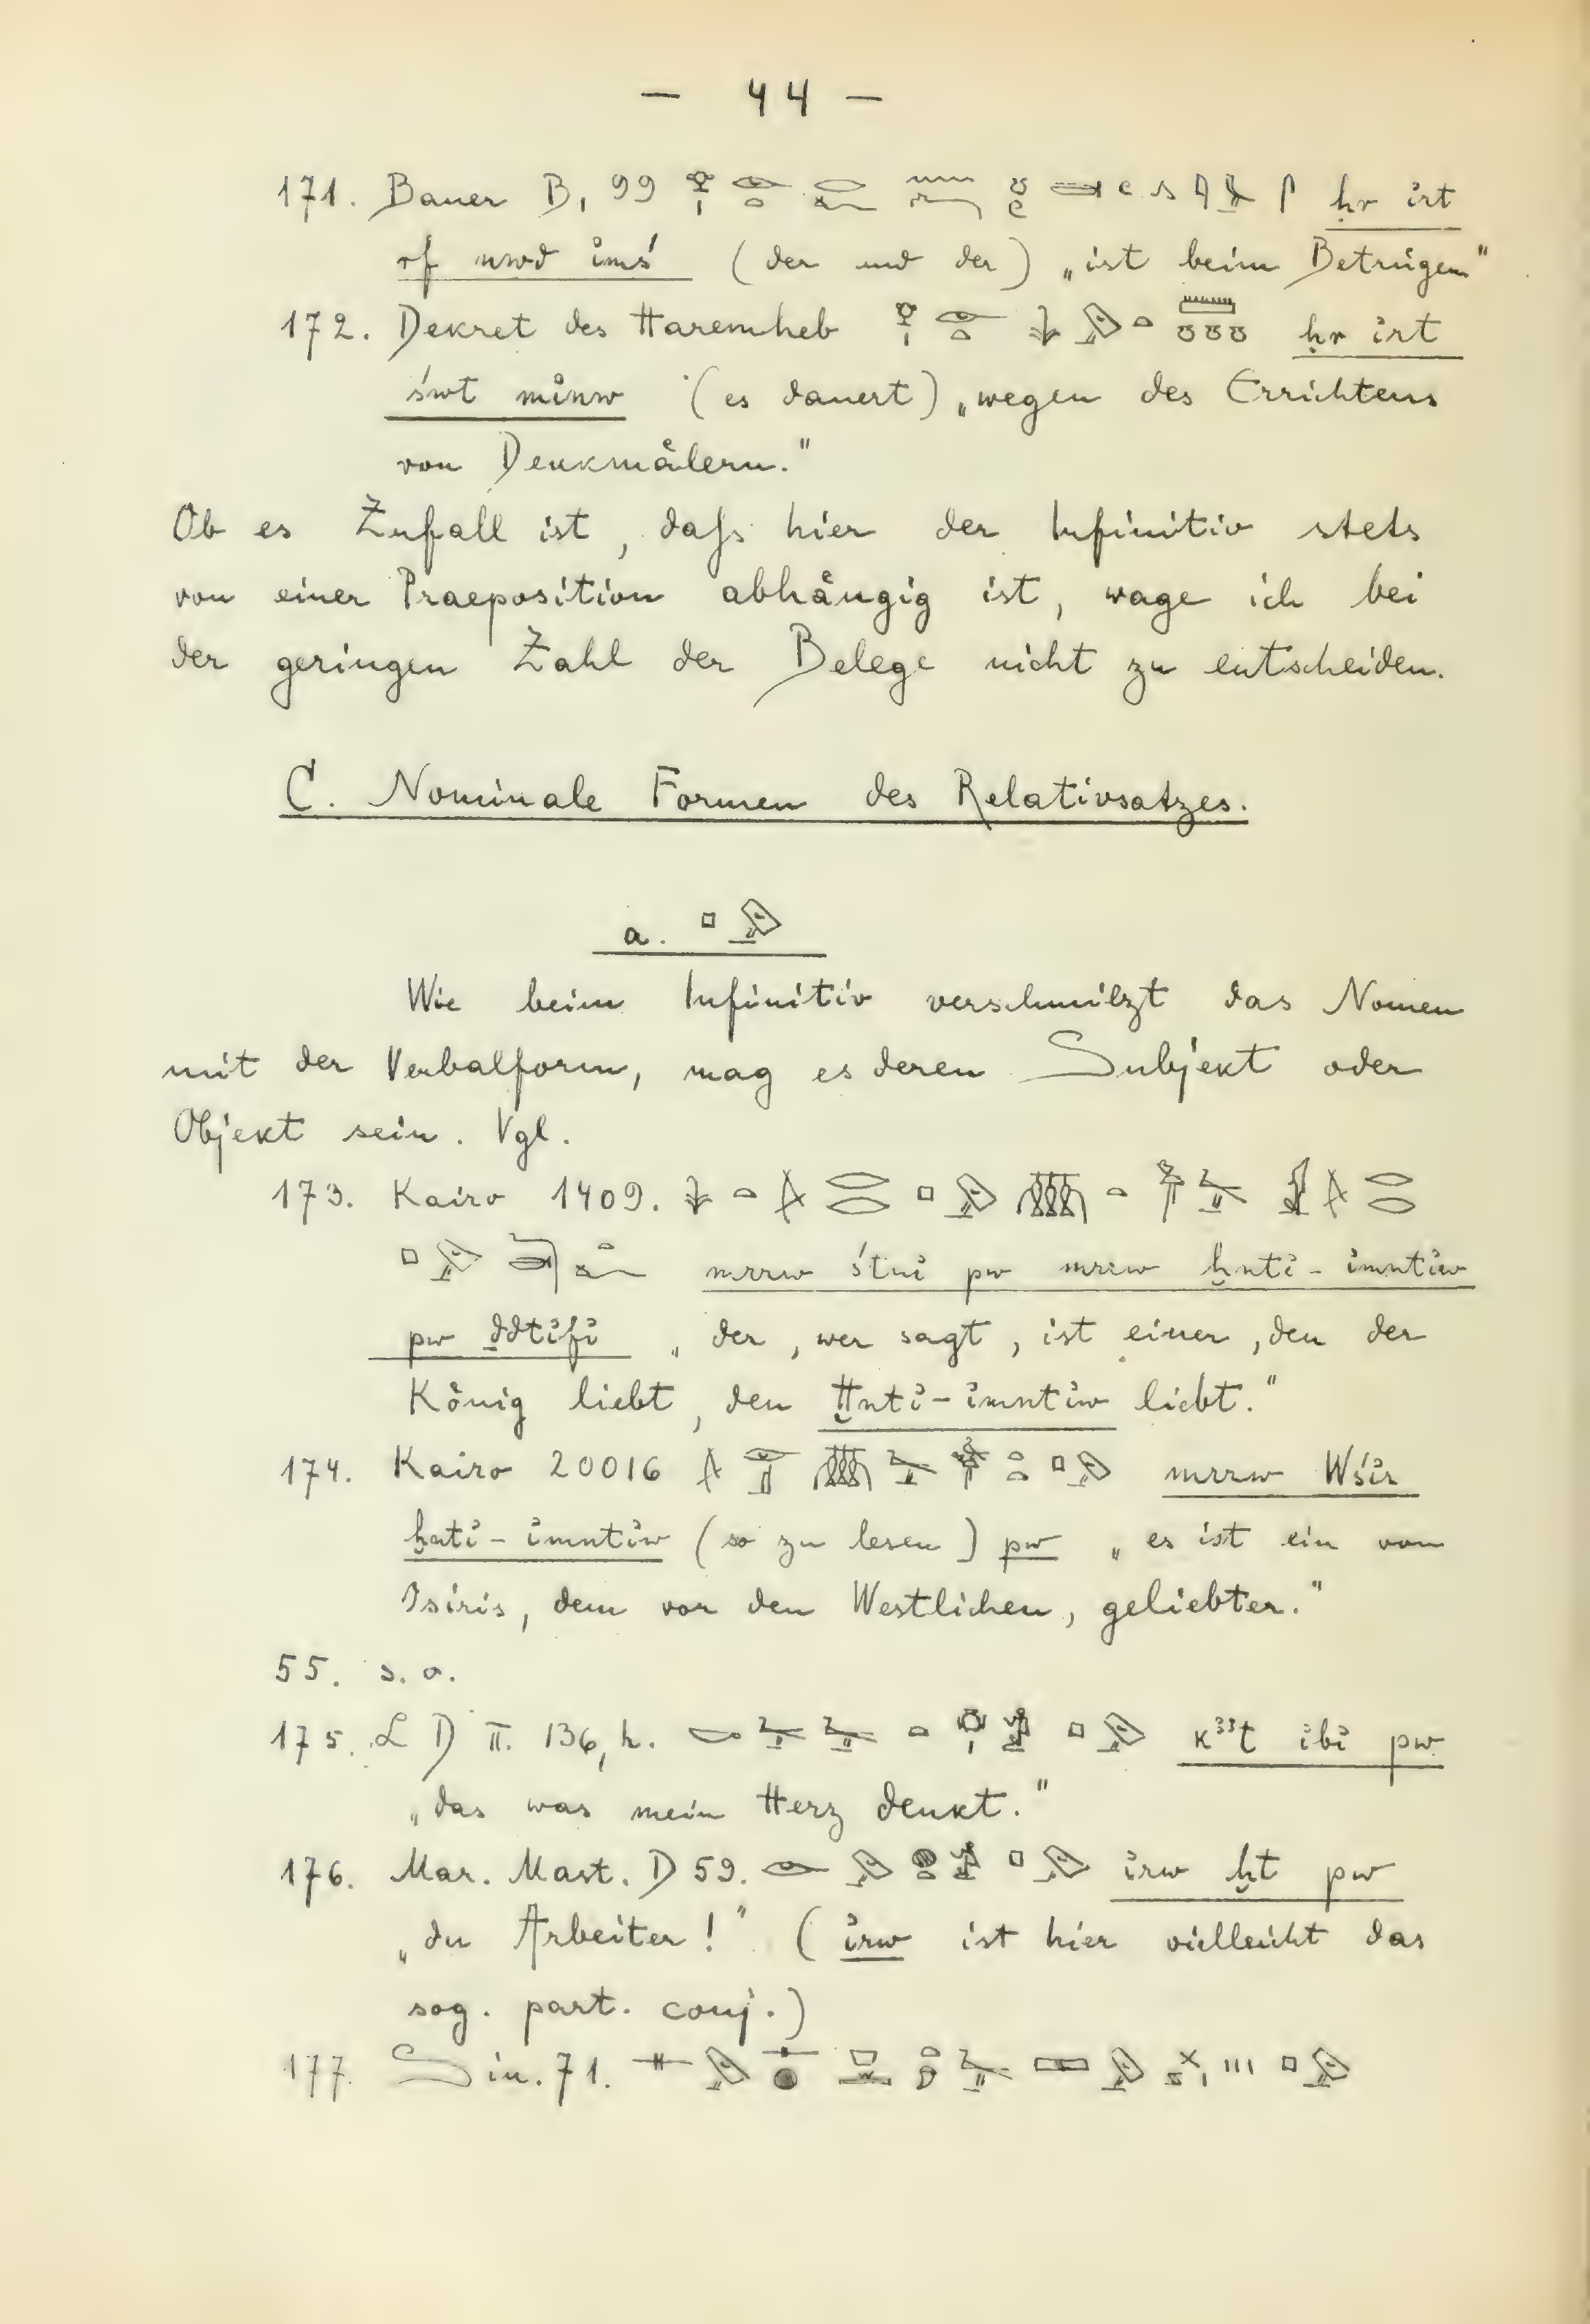 — 44 —
171. Bauer B, 99 ḥr irt
rf nwd imś (der und der) „ist beim Betrügen"
172. Dekret des Haremheb ḥr irt
śwt minw (es dauert) „wegen des Errichtens
von Denkmälern."
Ob es Zufall ist, daſs hier der Infinitiv stets
von einer Praeposition abhängig ist, wage ich bei
der geringen Zahl der Belege nicht zu entscheiden.
C. Nominale Formen des Relativsatzes.
a.
Wie beim Infinitiv verschmilzt das Nomen
mit der Verbalform, mag es deren Subjekt oder
Objekt sein. Vgl.
173. Kairo 1409.
mrrw śtni pw mrrw ḫnti-imntiw
pw ḏdtifi „der, wer sagt, ist einer, den der
König liebt, den Ḫnti-imntiw liebt."
174. Kairo 20016 mrrw Wśir
ḫnti-imntiw (so zu lesen) pw „es ist ein von
Isiris, dem vor den Westlichen, geliebter."
55. s. o.
175. L D II. 136, h. kꜣꜣt ibi pw
„das was mein Herz denkt."
176. Mar. Mast. D 59. irw ḫt pw
„du Arbeiter!" (irw ist hier vielleicht das
sog. part. conj.)
177. Sin. 71.